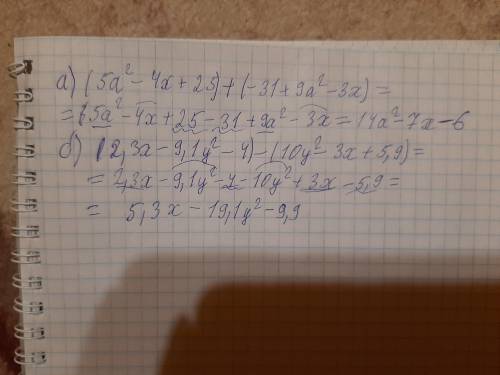 а) (5a²-4x+25)+(-31+9a²-3x)=
=(5a²-4x+25-31+9a²-3x=14a²-7x-6
б) (2,3x-9,1y²-4)-(10y²-3x+5,9)=
=2,3x-9,1y²-4-10y²+3x-5,9=
= 5,3x-19,1y²-9,9